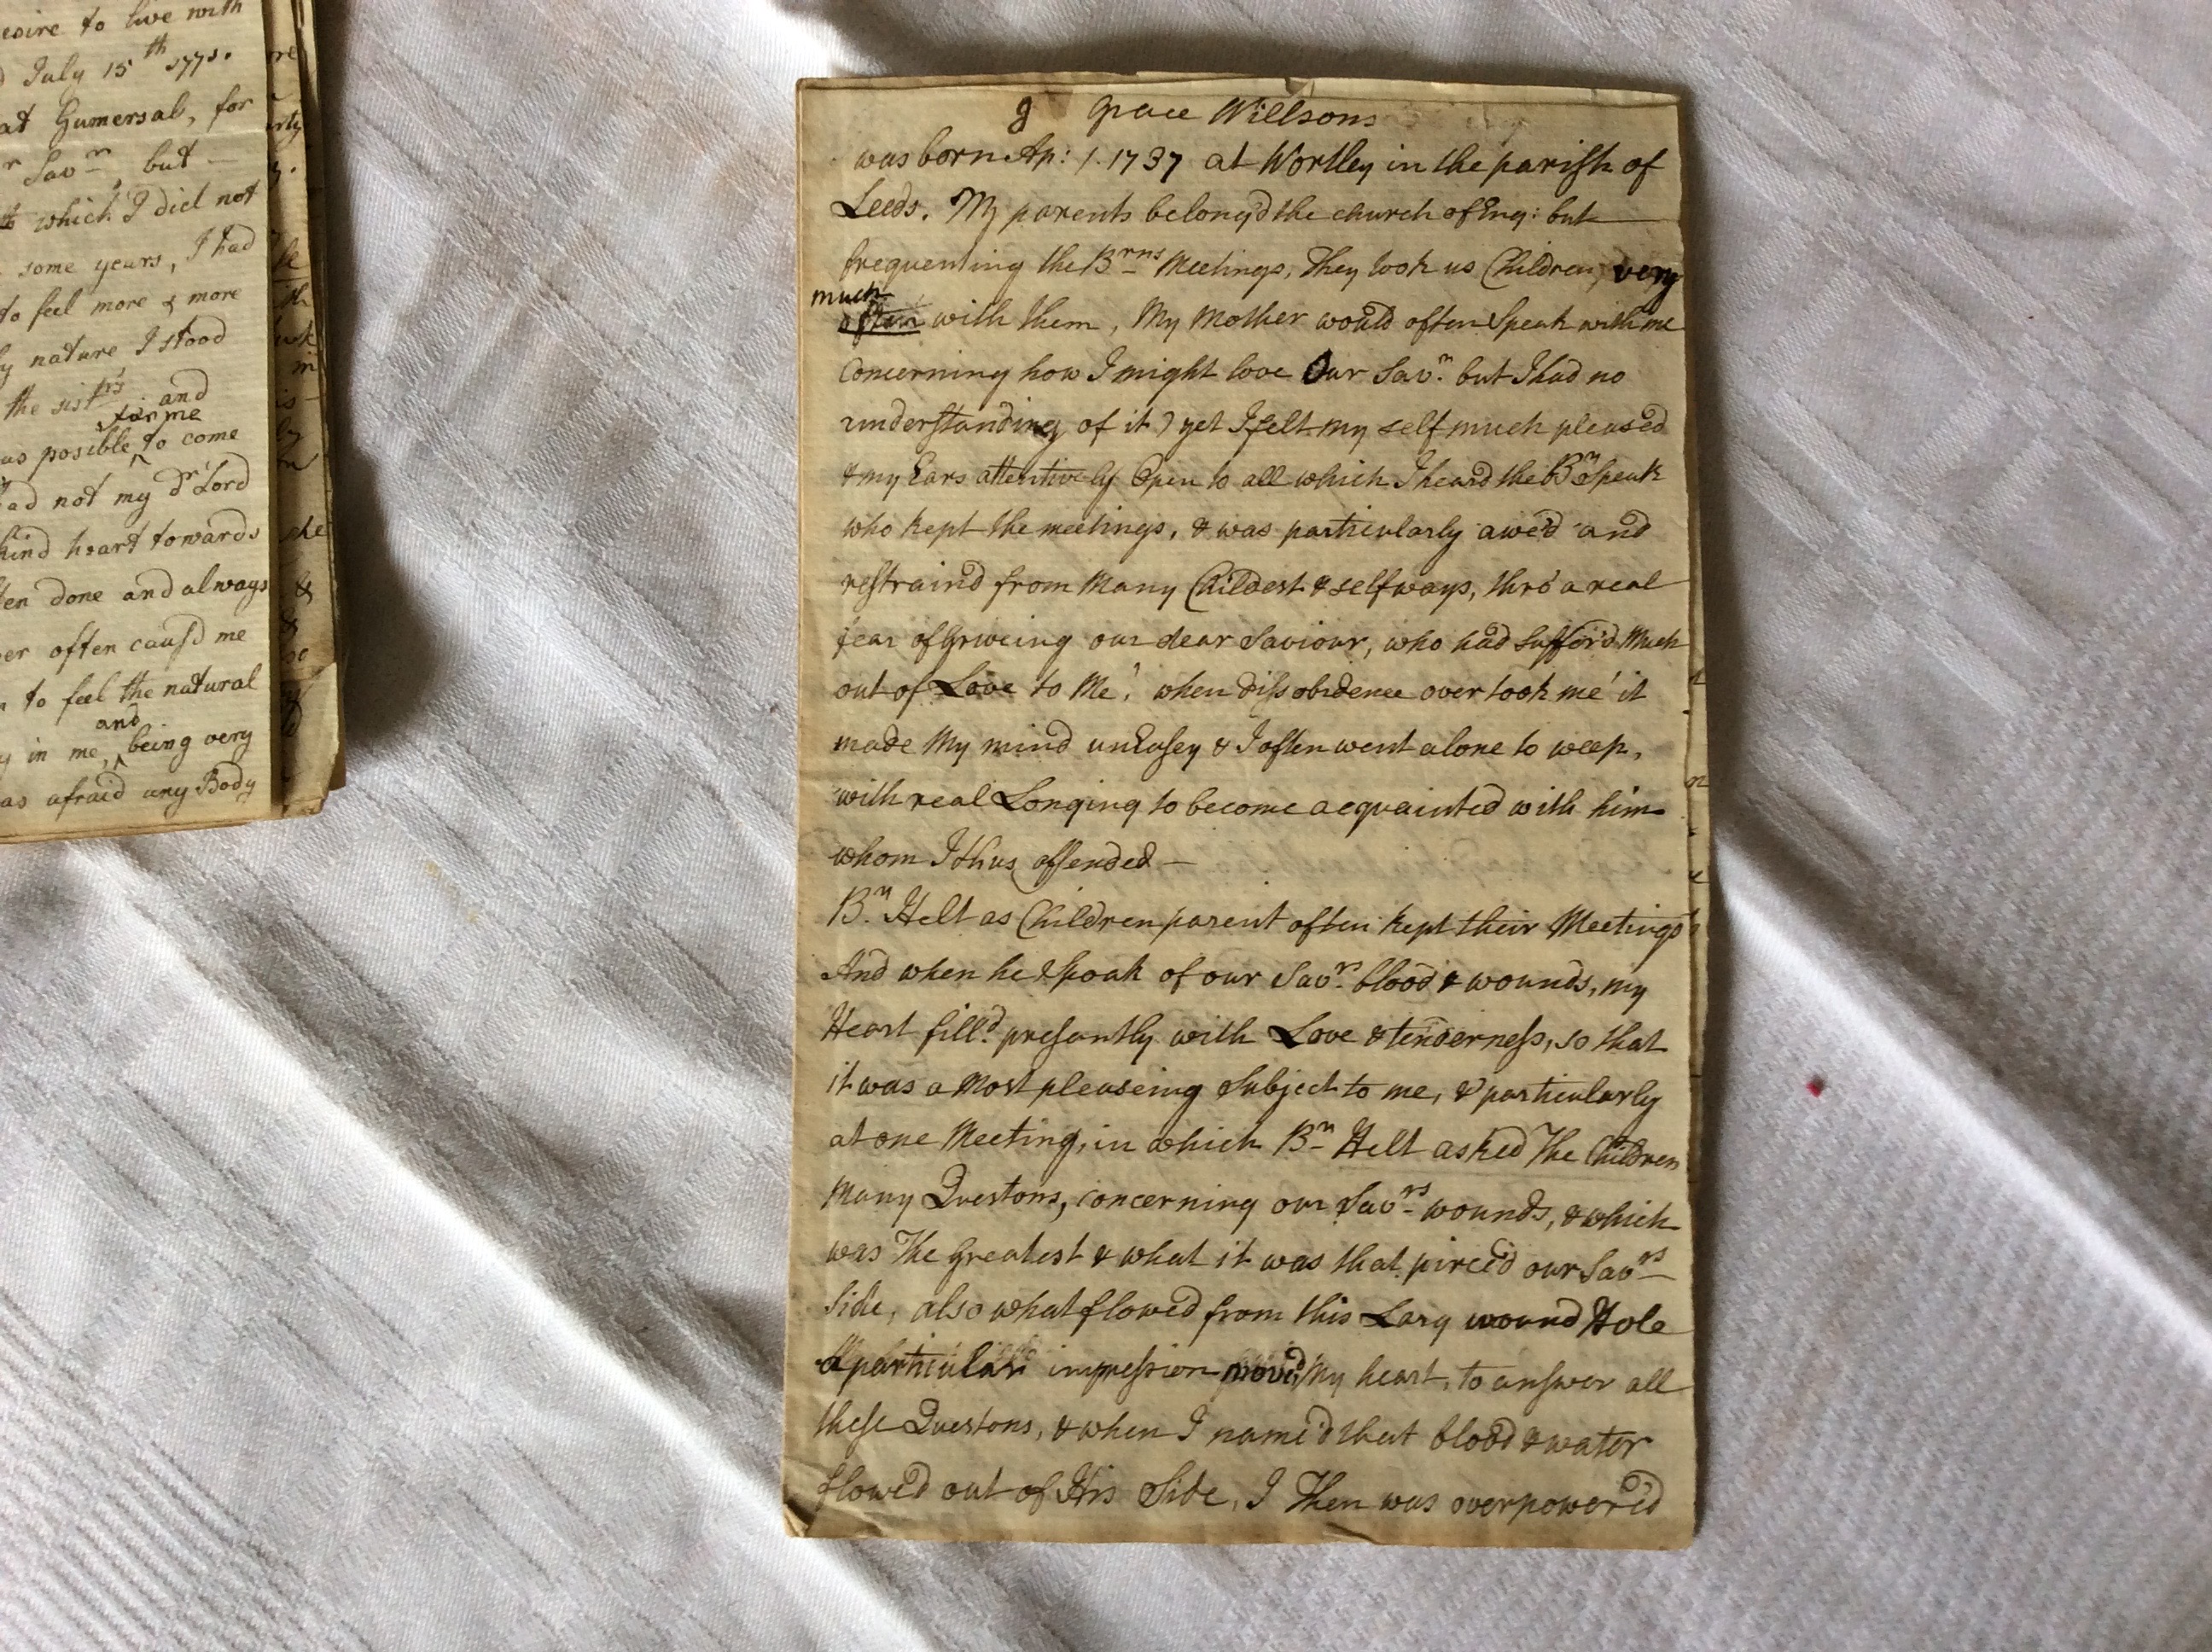 esire to live with
July 15th 1771.
at Gumersal, for
r Savr, but —
which I did not
some years, I had
to feel more & more
y nature I stood
the sistrs and
for me
as posible to come
ad not my dr Lord
kind heart towards
ten done and always
er often caus'd me
to feel the natural
and
y in me, being very
as afraid any Body
g Grace Willsons
was born Ap: 1. 1737 at Wortley in the parish of
Leeds. My parents belong'd the church of Eng: but
frequenting the Brns Meetings, They took us Children, very
much
often with them, My Mother would often Speak with me
Concerning how I might love Our Savr. but I had no
understanding of it) yet I felt my self much pleased
& my Ears attentively Open to all which I heard the Brn Speak
who kept the meetings, & was particularly awe'd and
restrain'd from Many Childest & self ways, thro' a real
fear of Griveing our dear Saviour, who had suffor'd Much
out of Love to Me, when dissobidence over took me it
made My mind unEasey & I often went alone to weep,
with real Longing to become acquainted with him
whom I thus offended —
Br. Helt as Children parent often kept their Meetings
And when he Spoak of our Savrs. blood & wounds, my
Heart fill'd. presantly with Love & tenderness, so that
it was a Most pleaseing Subject to me, & particularly
at one Meeting, in which Br Helt asked The Children
Many Questons, concerning our Savrs wounds, & which
was The Greatest & what it was that pirce'd our Savrs
Side, also what flowed from this Larg wound Hole
A particular impression moved My heart, to answer all
these Questons, & when I name'd that blood & water
flowed out of His Side, I Then was overpowere'd